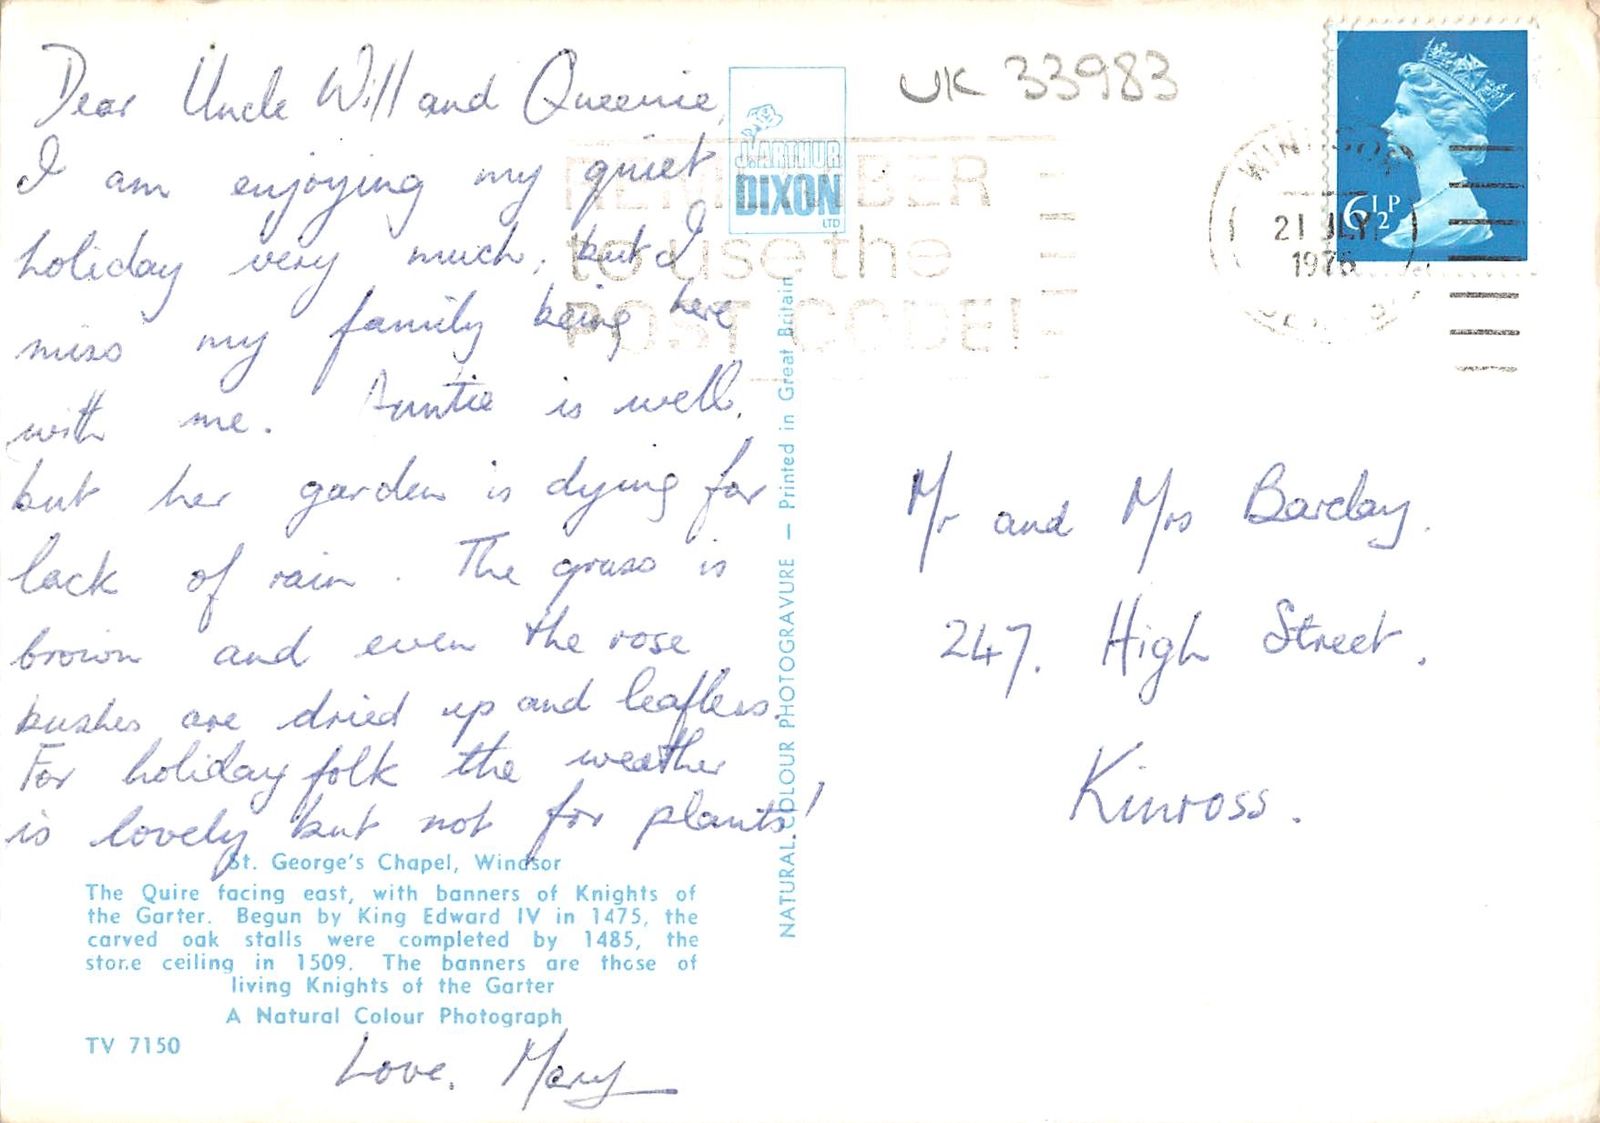 Dear Uncle Will and Queenie,
I am enjoying my quiet
holiday very much, but I
miss my family being here
with me. Auntie is well,
but her garden is dying for
lack of rain. The grass is
brown and even the rose
bushes are dried up and leafless.
For holiday folk the weather
is lovely but not for plants!
St. George's Chapel, Windsor
The Quire facing east, with banners of Knights of
the Garter. Begun by King Edward IV in 1475, the
carved oak stalls were completed by 1485, the
stone ceiling in 1509. The banners are those of
living Knights of the Garter
A Natural Colour Photograph
TV 7150
Love, Mary
J. ARTHUR
DIXON
LTD
NATURAL COLOUR PHOTOGRAVURE — Printed in Great Britain
REMEMBER
to use the
POST CODE!
UK 33983
WINDSOR
21 JLY
6½P
Mr and Mrs Barclay.
247. High Street.
Kinross.